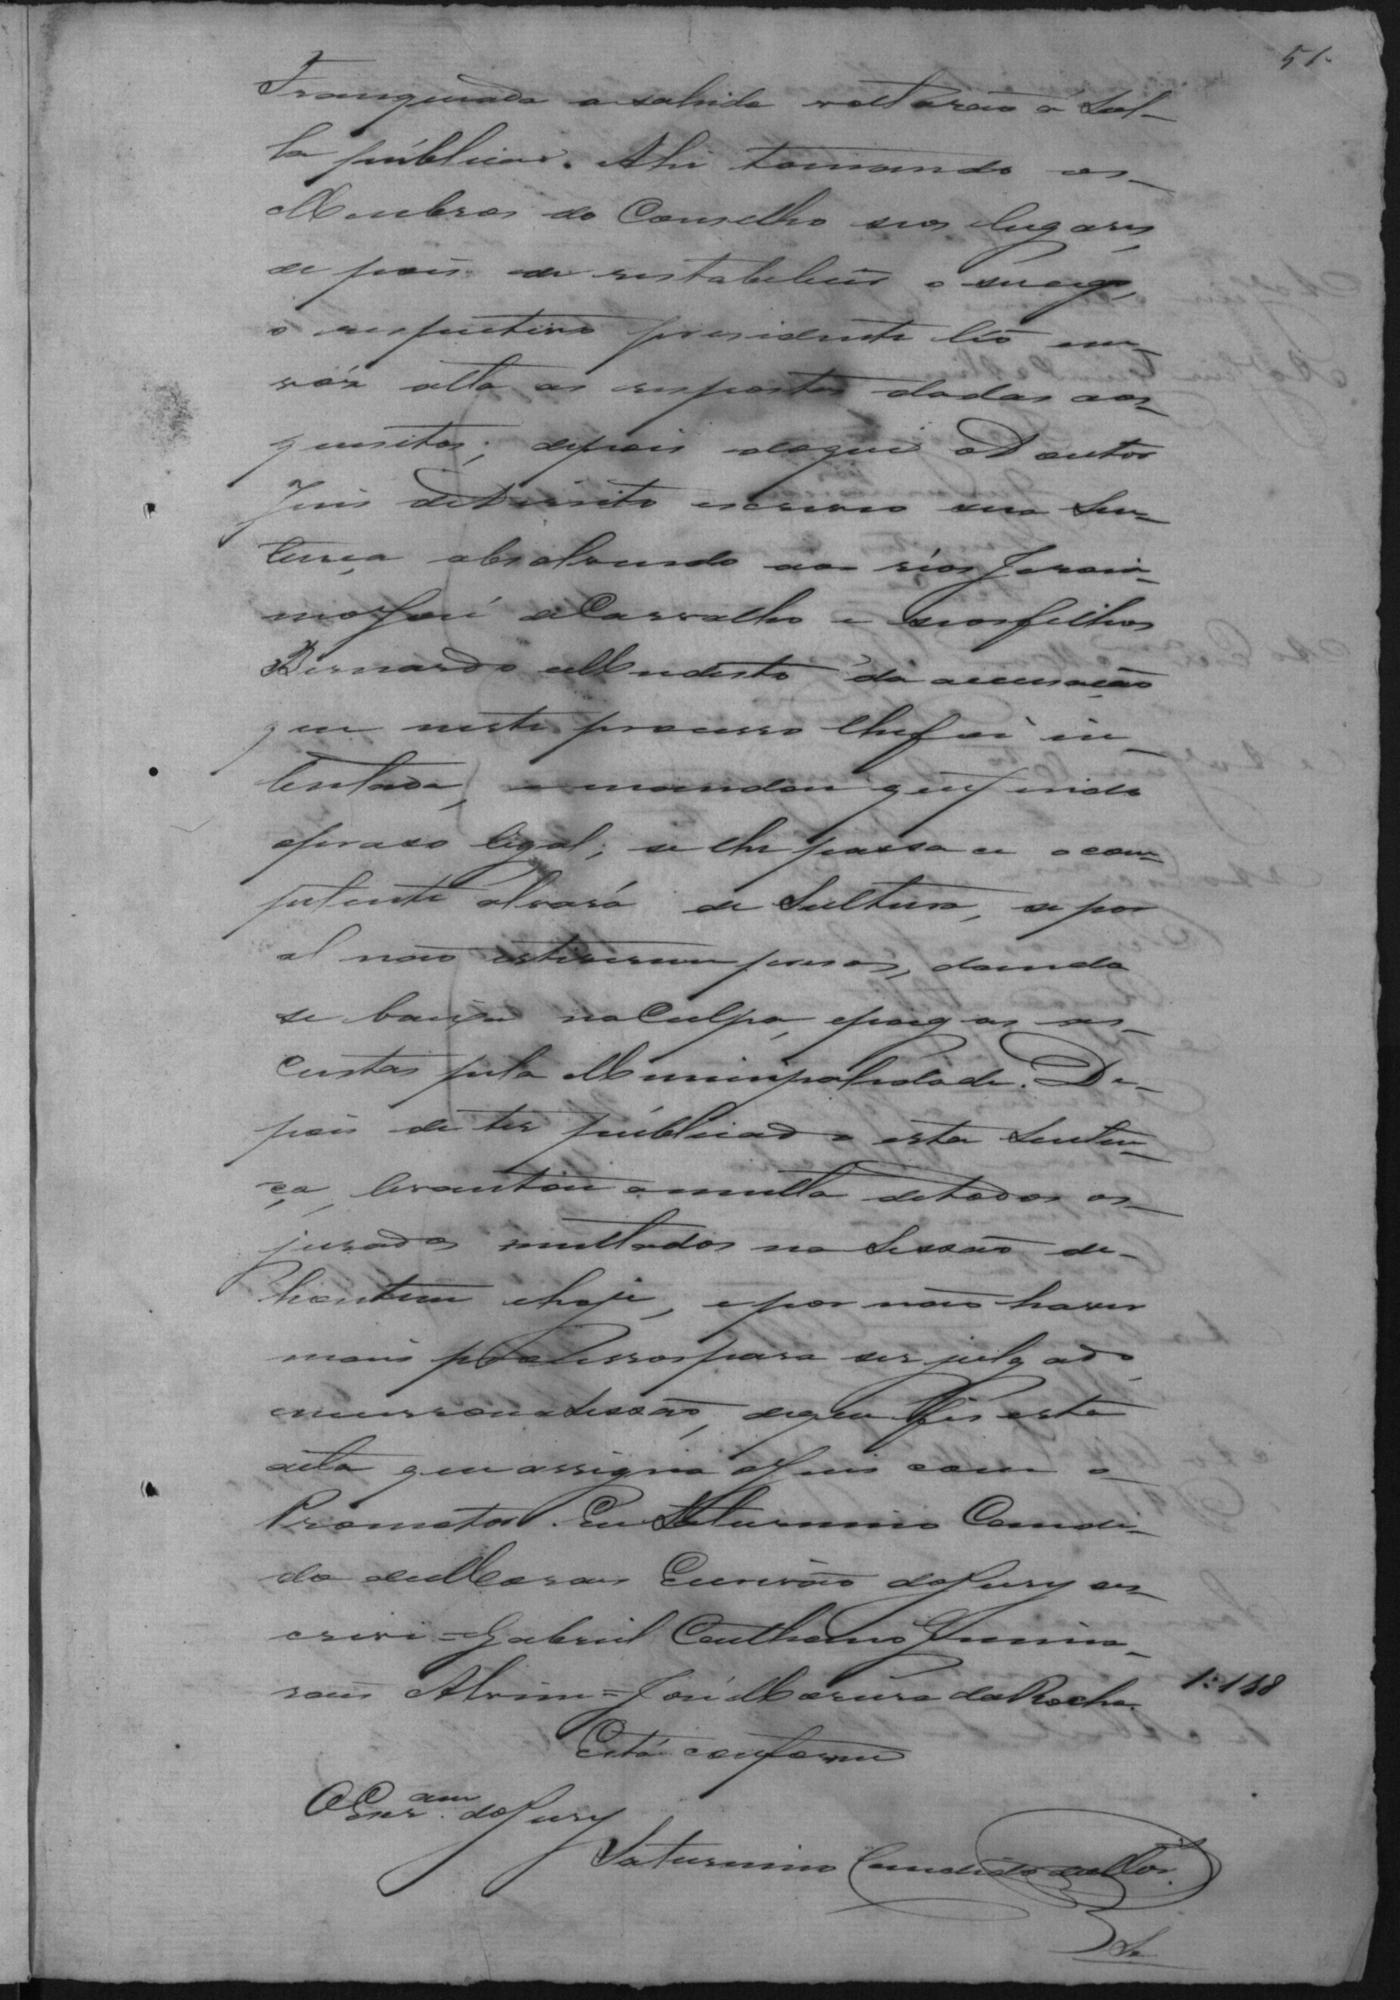 51.
Franqueada a sahida voltarão á Sal-
la publica. Ahi tomando os
Membros do Conselho seos lugares,
de pois de restabelecido o
o respectivo presidente léo em
vóz alta as respostas dadas aos
quesitos; depois do que o Doutor
Juis de Direito escreveo sua Sen-
tença absolvendo aos réos Jeroni-
mo José de Carvalho e seos filhos
Bernardo e Modesto da accusação
que neste processo lhe foi in-
tentada, e mandou que findo
o praso legal, se lhe passa ce o com-
petente alvará de Soltura, se por
al não estivercem presos, dando
se baixa na Culpa, e pagas as
custas pela Municipalidade. De-
pois de ter publicado esta Senten-
ça, levantou a multa de todos os
jurados multados na Sessão de
hontem e hoje, e por não haver
mais processos para ser julgado
encerrou a Sessão, do que fis esta
acta que assigna o Juis com o
Promotor. Eu Saturnino Candi-
do de Moraes Escrivão do Jury es-
crevi = Gabriel Caetano Guima-
raes Alvim = José Moreira da Rocha.
1:188
Está conforme
O Escr.am do Jury
Saturnino Candido de Mor.